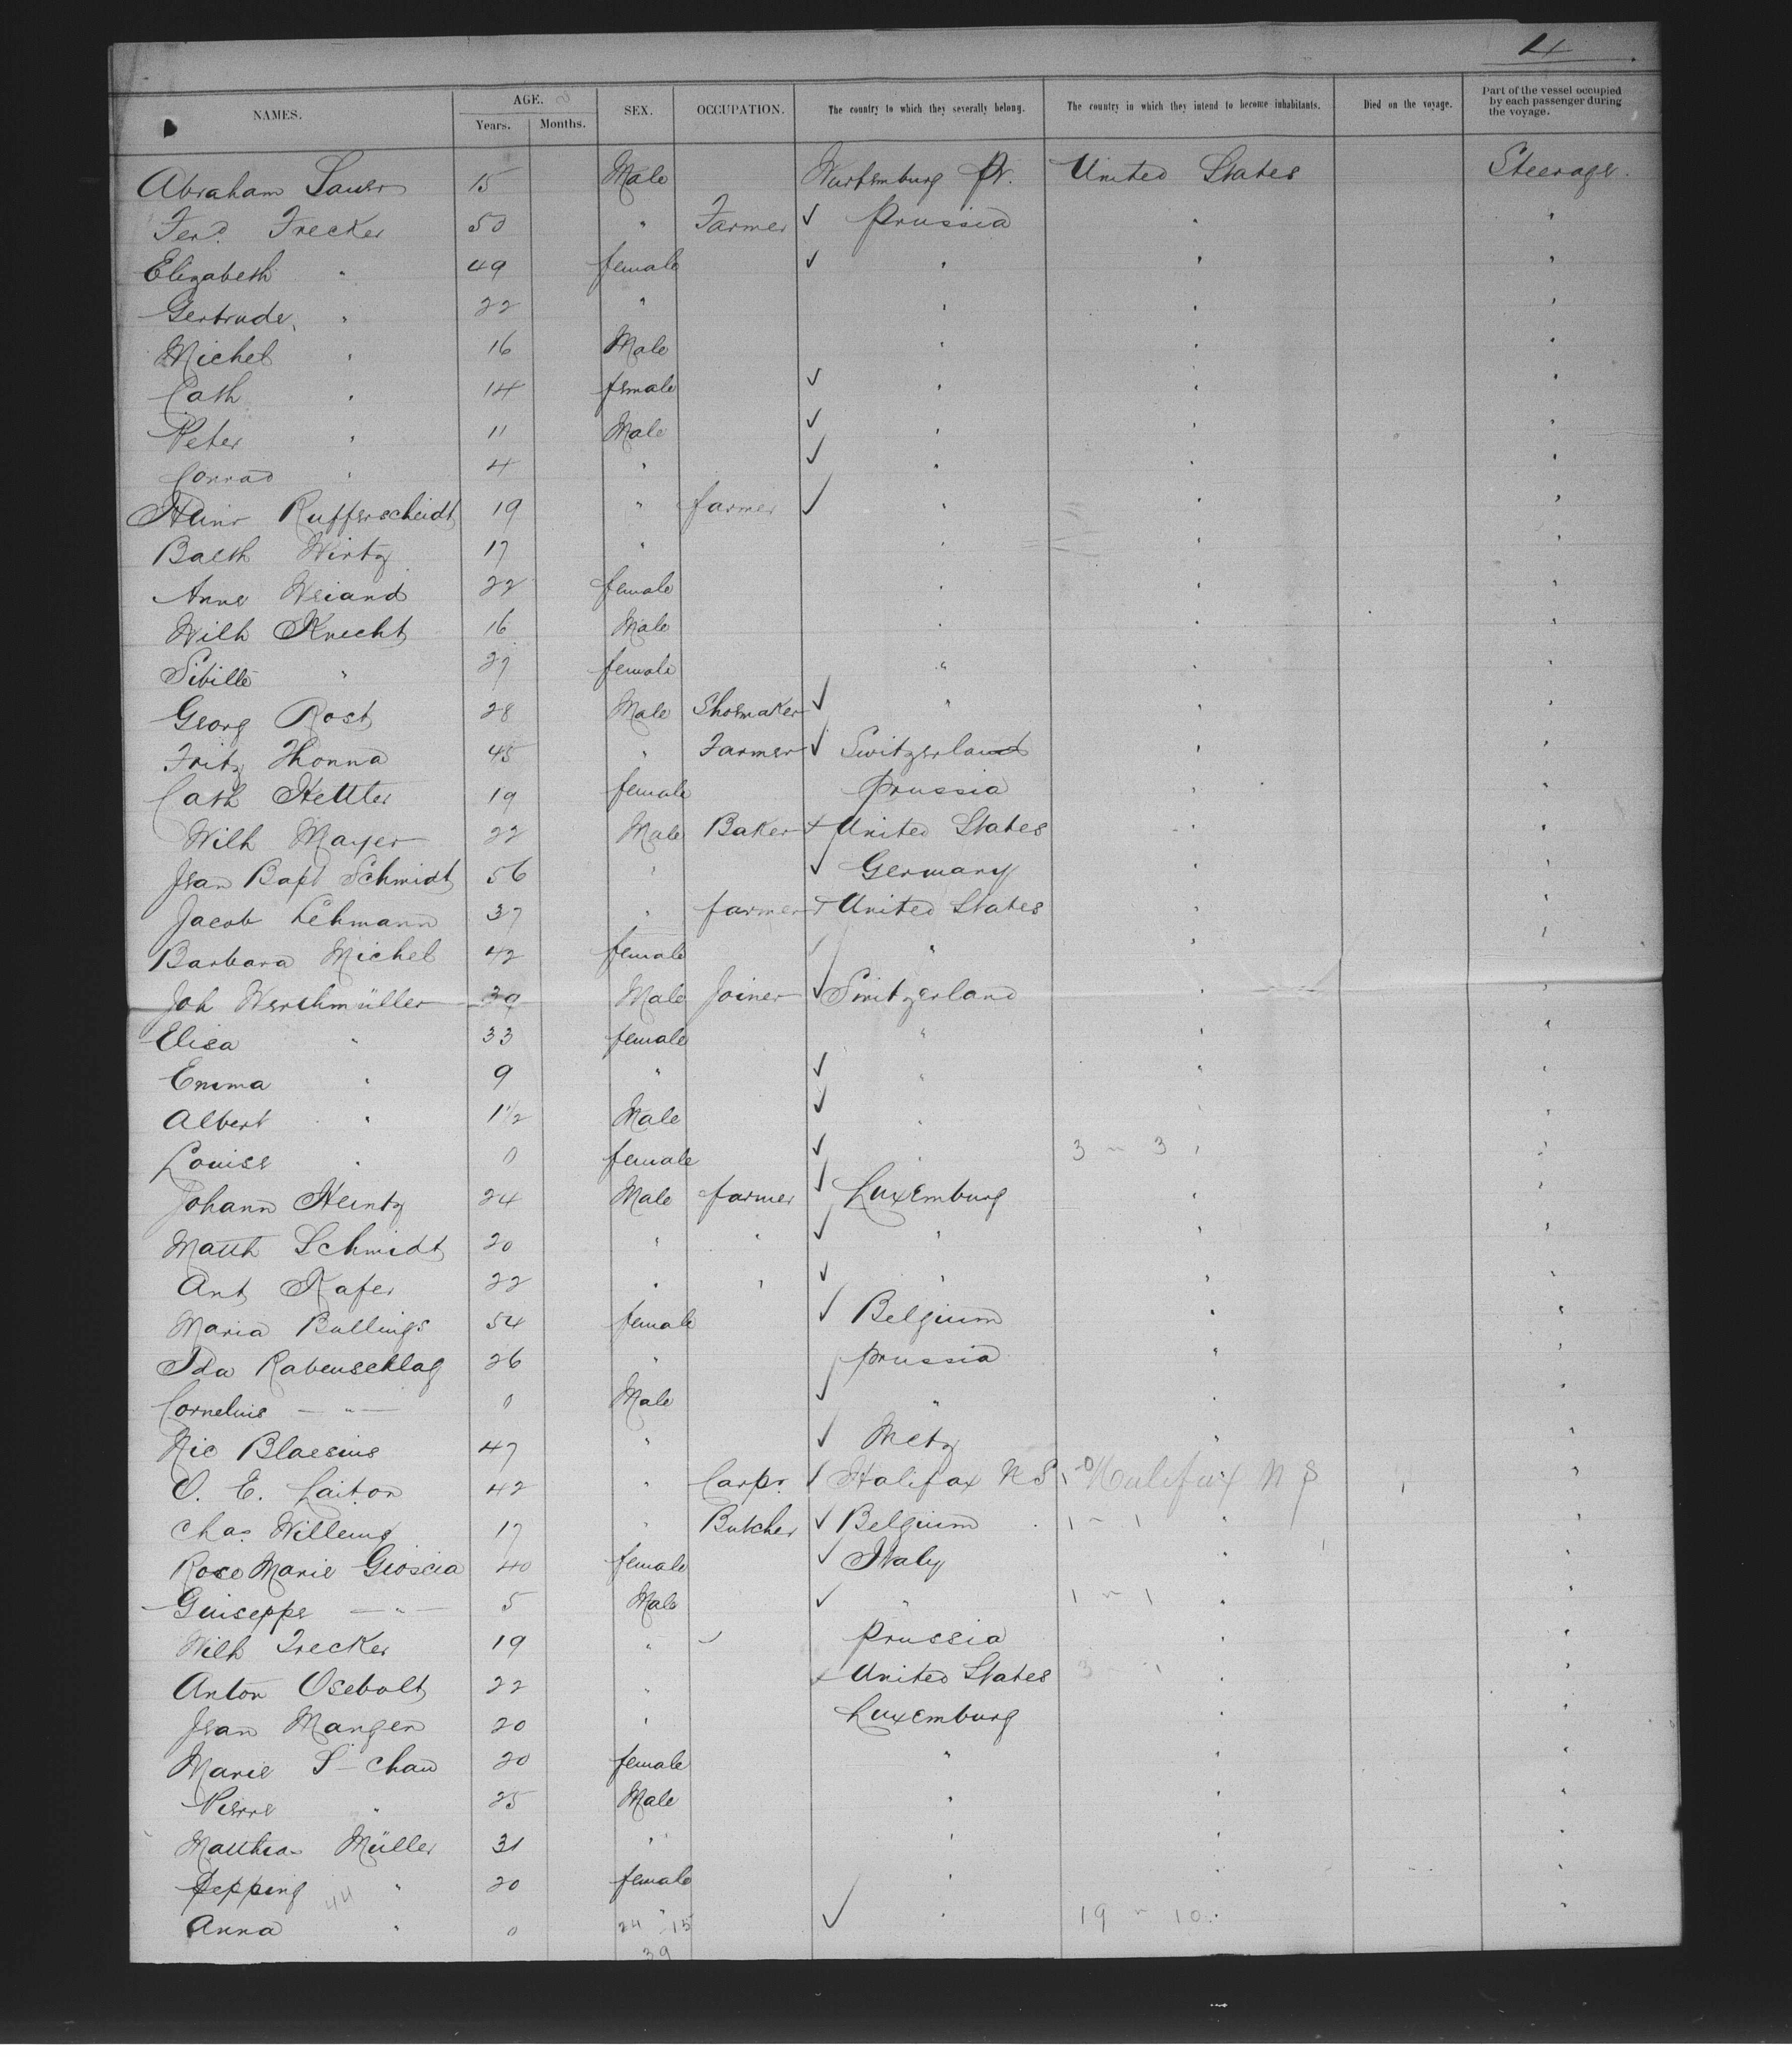 4
NAMES. AGE. Years. Months. SEX. OCCUPATION. The country to which they severally belong. The country in which they intend to become inhabitants. Died on the voyage. Part of the vessel occupied by each passenger during the voyage.
Abraham Sauer 15 Male Wurtemburg Pr. United States Steerage.
Ferd. Trecker 50 " Farmer ✓ Prussia " "
Elizabeth " 49 female ✓ " " "
Gertrude " 22 " " " "
Michel " 16 Male " " "
Cath " 14 female ✓ " " "
Peter " 11 Male ✓ " " "
Conrad " 4 " ✓ " " "
Heinr Rufferscheidt 19 " farmer ✓ " " "
Balth Wirtz 17 " " " "
Anne Weiand 22 female " " "
Wilh Knecht 16 Male " " "
Sibille " 27 female " " "
Georg Rost 28 Male Shoemaker ✓ " " "
Fritz Thonna 45 " Farmer ✓ Switzerland " "
Cath Hettler 19 female Prussia " "
Wilh Mayer 22 Male Baker + United States " "
Jean Bapt Schmidt 56 " ✓ Germany " "
Jacob Lehmann 37 " farmer + United States " "
Barbara Michel 42 female ✓ " " "
Joh Werthmüller 39 Male Joiner ✓ Switzerland " "
Elisa " 33 female " " "
Emma " 9 " ✓ " " "
Albert " 1 1/2 Male ✓ " " "
Louise " 0 female ✓ " 3 ~ 3 " "
Johann Heintz 24 Male farmer ✓ Luxemburg " "
Matth Schmidt 20 " " ✓ " " "
Ant Kafer 22 " " ✓ " " "
Maria Bullings 54 female ✓ Belgium " "
Ida Rabenschlag 26 " ✓ Prussia " "
Cornelius — " — 0 Male ✓ " " "
Nic Blaesius 47 " ✓ Metz " "
O. E. Laiton 42 " Carpr. ✓ Halifax N S Halifax N S "
Chas Willems 17 " Butcher ✓ Belgium 1 ~ 1 " "
Rose Marie Gioscia 40 female ✓ Italy " "
Guiseppe — " — 5 Male ✓ " 1 ~ 1 " "
Wilh Trecker 19 " ✓ Prussia " "
Anton Osebolt 22 " + United States 3 ~ 1 " "
Jean Mangen 20 " Luxemburg " "
Marie S-chaw 20 female " " "
Pierre " 25 Male " " "
Matthias Müller 31 " " " "
Pepping " 20 female " " "
44
Anna " 0 " ✓ " 19 ~ 10 " "
24 15
39